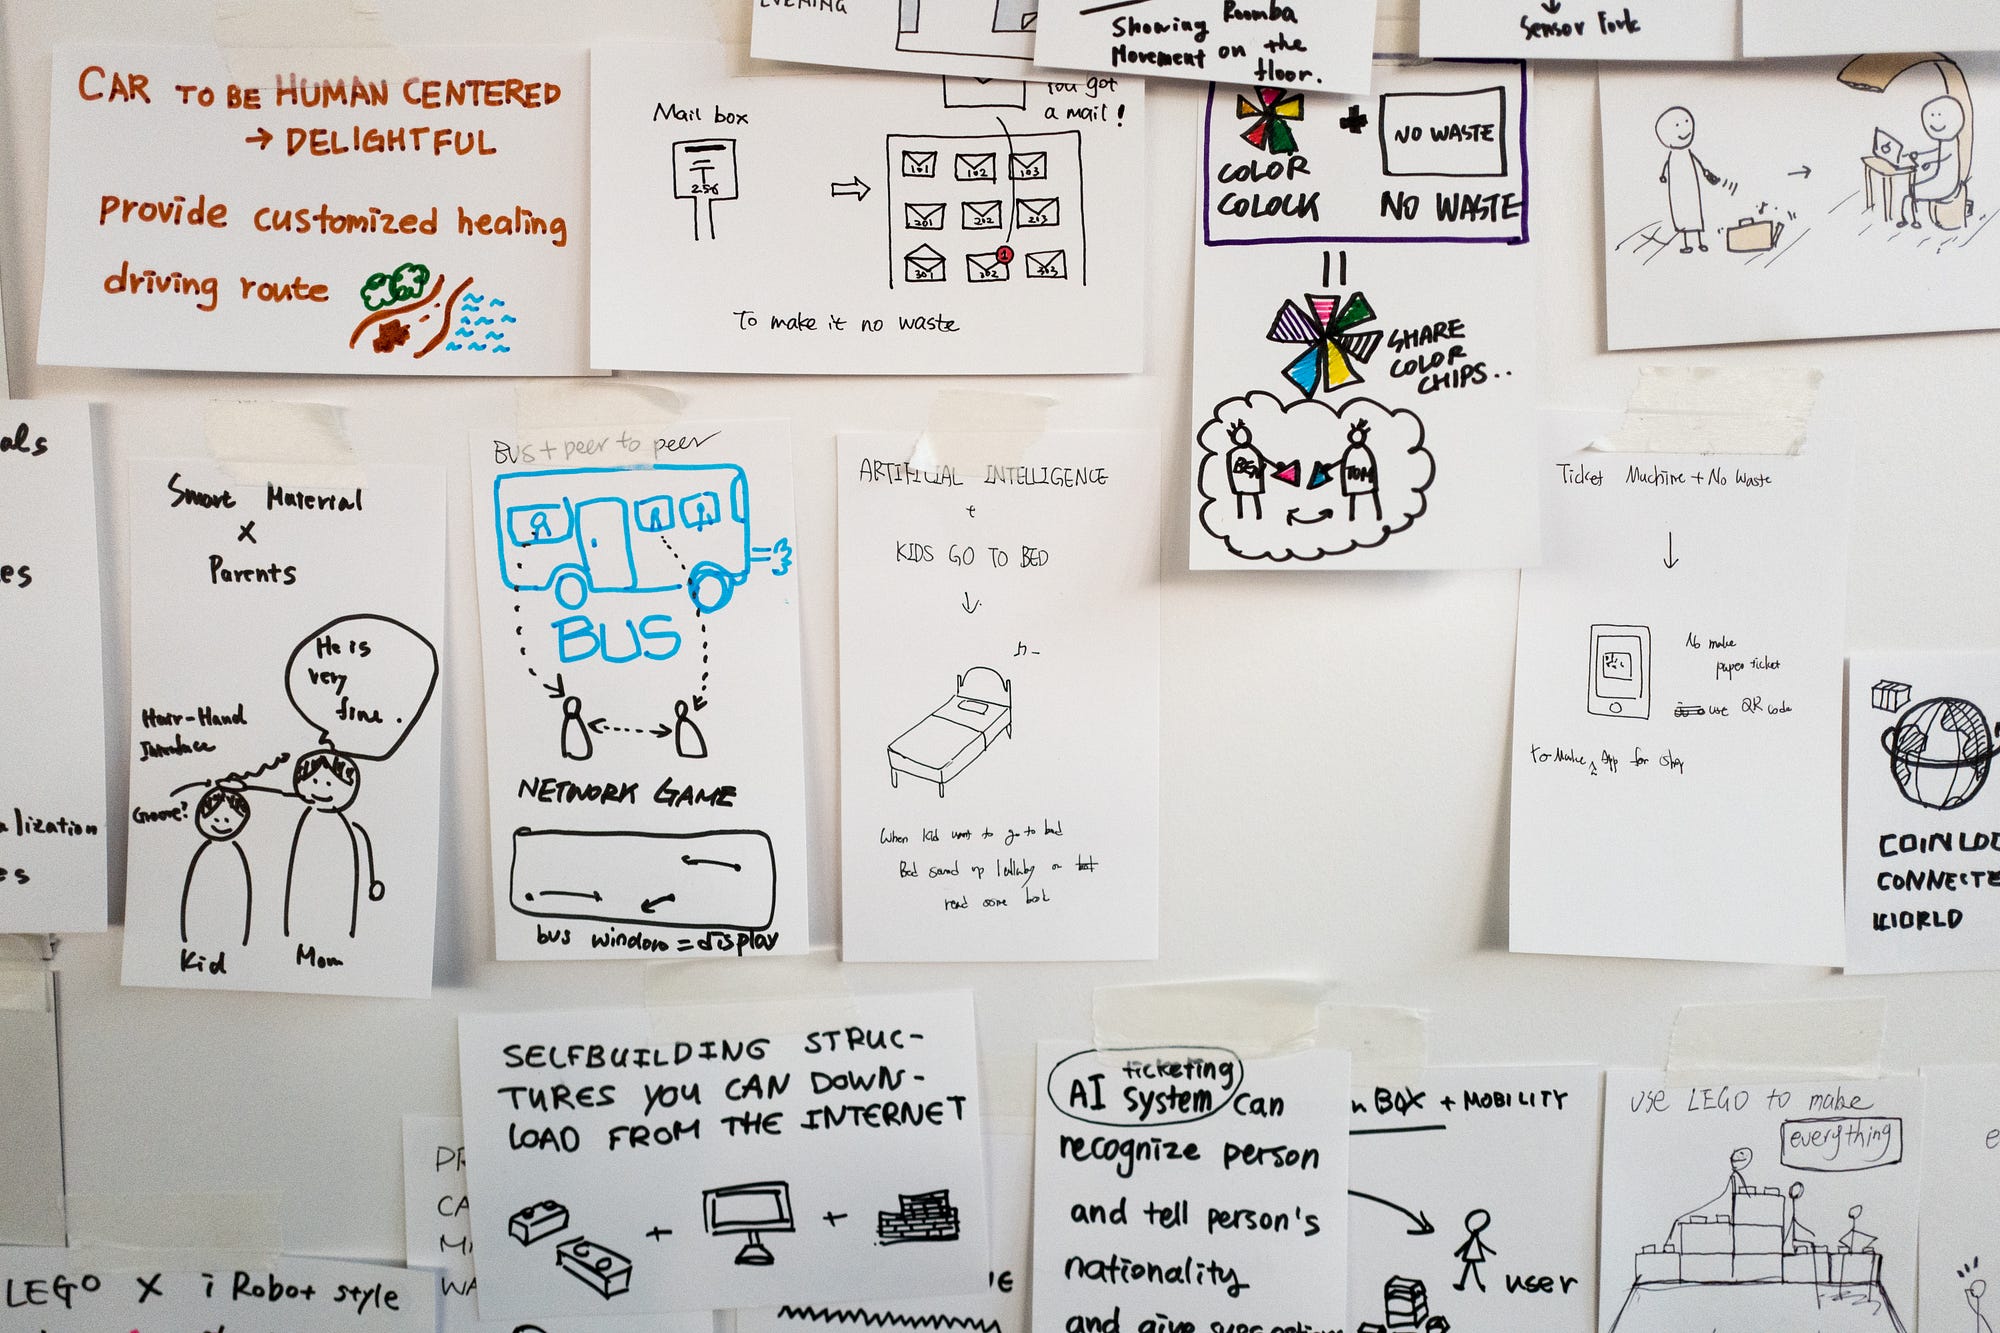 EVENING
Showing Roomba
Movement on the
floor.
Sensor Fork
CAR TO BE HUMAN CENTERED
→ DELIGHTFUL
Provide customized healing
driving route
Mail box
256
You got
a mail!
101 102 103
201 202 203
301 302 303
1
To make it no waste
COLOR
COLOCK
+
NO WASTE
NO WASTE
=
SHARE
COLOR
CHIPS..
BEN
TOM
als
es
alization
es
Smart Material
X
Parents
He is
very
fine.
Hair-Hand
Interface
Groove?
Kid
Mom
BUS + peer to peer
BUS
NETWORK GAME
bus window = display
ARTIFICIAL INTELLIGENCE
+
KIDS GO TO BED
When kid want to go to bed
Bed sound up lullaby or
read some book
Ticket Machine + No Waste
No make
paper ticket
use QR code
to make App for
COIN LOC
CONNECTE
WORLD
SELFBUILDING STRUC-
TURES YOU CAN DOWN-
LOAD FROM THE INTERNET
+ +
AI ticketing
system can
recognize person
and tell person's
nationality
and give
BOX + MOBILITY
user
USE LEGO to make
everything
CA
WA
LEGO X iRobot style